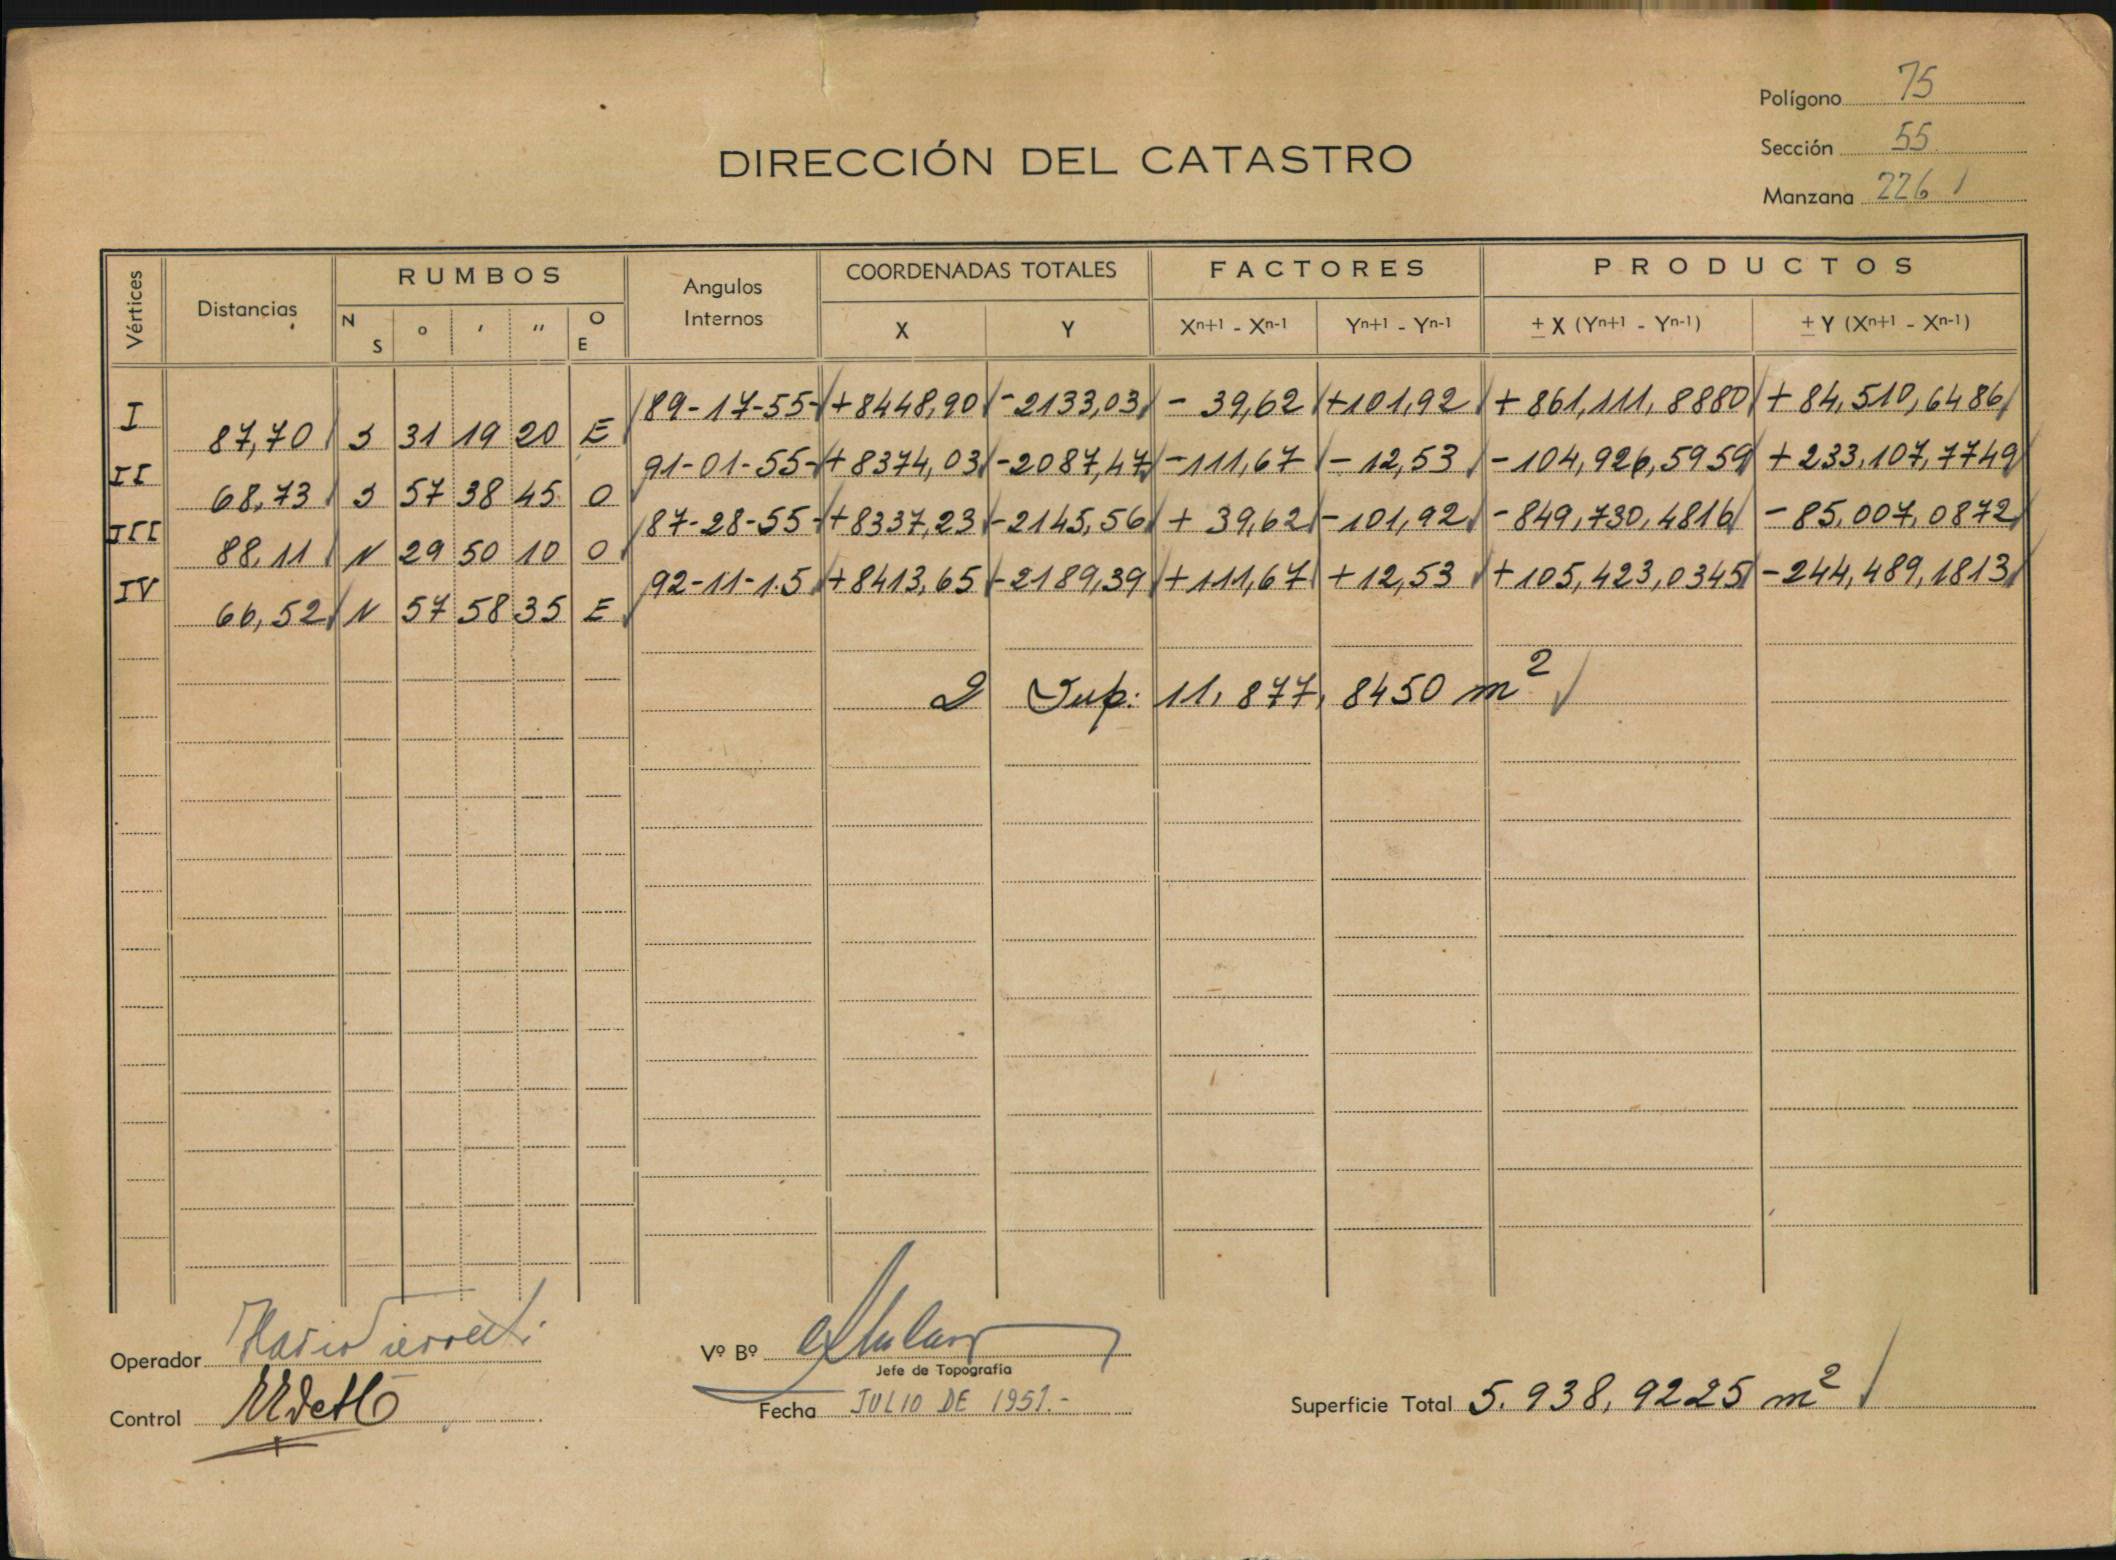 Polígono 75
DIRECCIÓN DEL CATASTRO
Sección 55
Manzana 226
Vértices Distancias RUMBOS Angulos Internos COORDENADAS TOTALES FACTORES PRODUCTOS
N S ° ′ ″ O E X Y Xⁿ⁺¹ - Xⁿ⁻¹ Yⁿ⁺¹ - Yⁿ⁻¹ ± X (Yⁿ⁺¹ - Yⁿ⁻¹) ± Y (Xⁿ⁺¹ - Xⁿ⁻¹)
I 89-17-55- +8448,90 -2133,03 - 39,62 +101,92 +861,111,8880 +84,510,6486
87,70 S 31 19 20 E
II 91-01-55- +8374,03 -2087,47 -111,67 -12,53 -104,926,5959 +233.107,7749
68,73 S 57 38 45 O
III 87-28-55- +8337,23 -2145,56 + 39,62 -101,92 -849,730,4816 -85.007,0872
88,11 N 29 50 10 O
IV 92-11-15 +8413,65 -2189,39 +111,67 +12,53 +105,423,0345 -244,489,1813
66,52 N 57 58 35 E
2 Sup: 11.877,8450 m²
Operador
Vº Bº
Jefe de Topografía
Control
Fecha JULIO DE 1951.-
Superficie Total 5.938,9225 m²